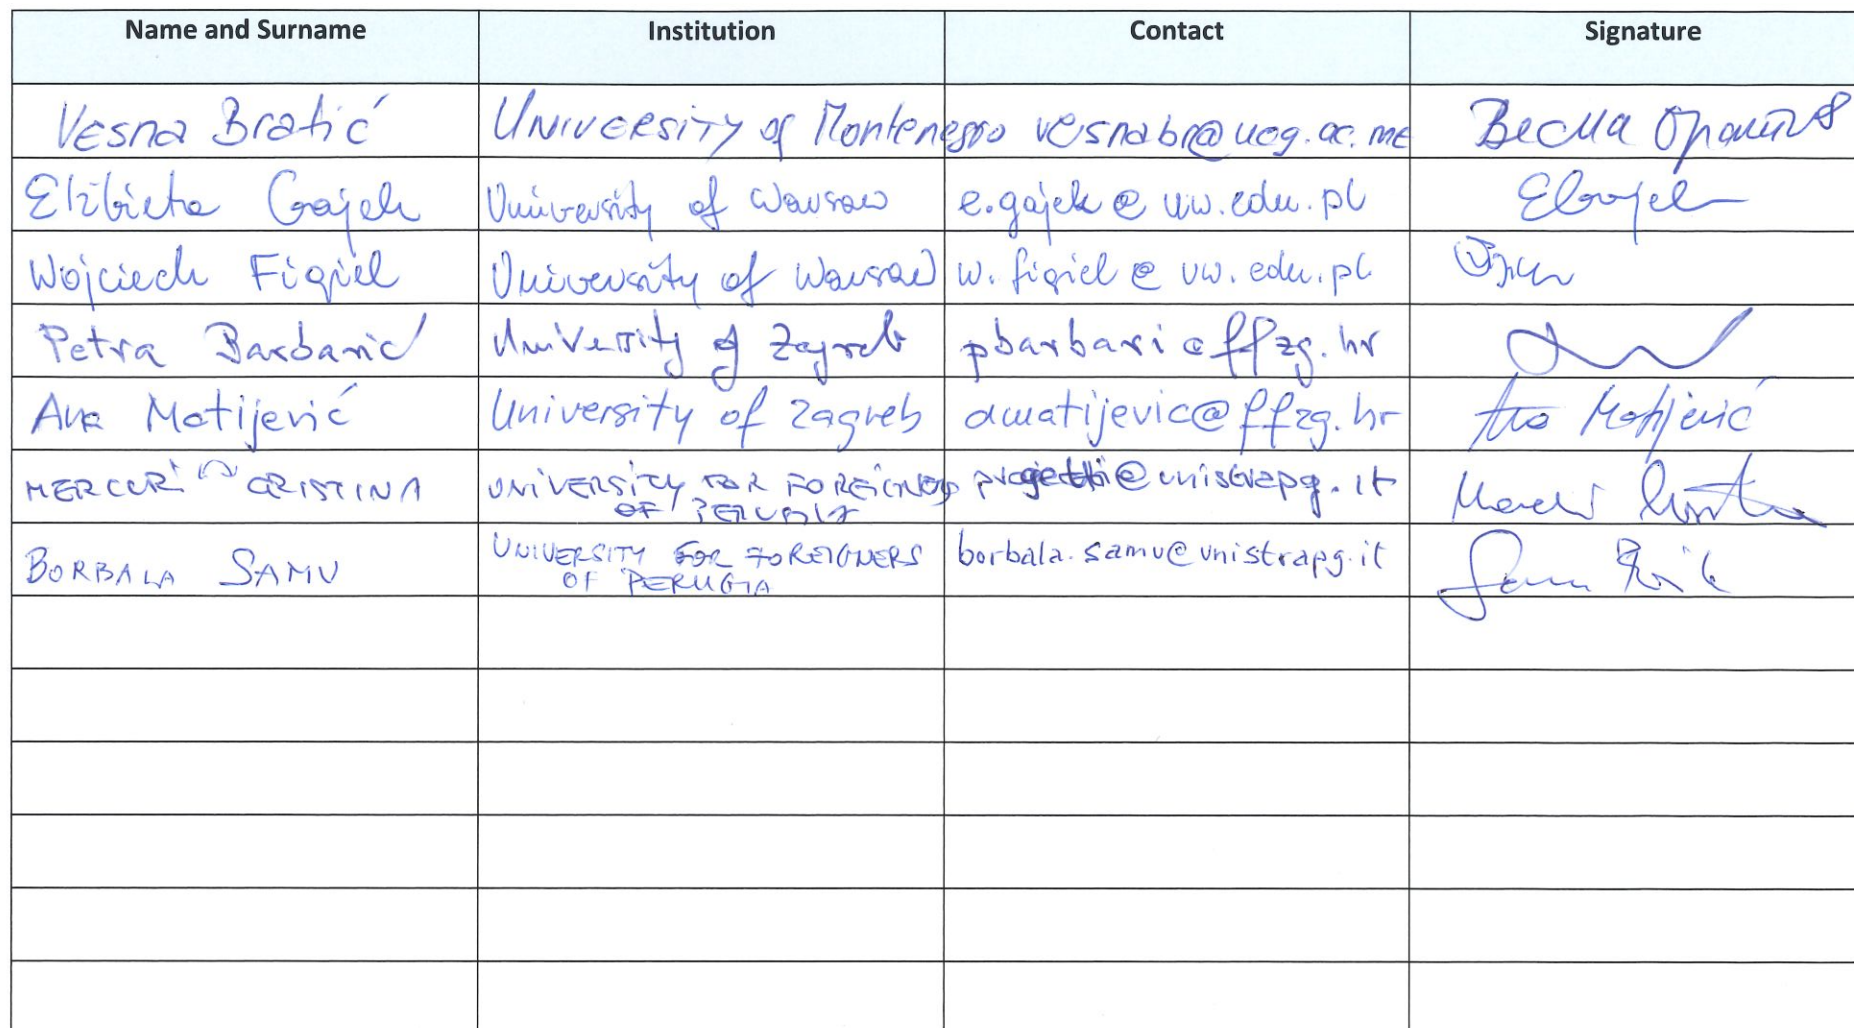 Name and Surname Institution Contact Signature
Vesna Bratić University of Montenegro vesnabr@ucg.ac.me Весна
Elżbieta Gajek University of Warsaw e.gajek@uw.edu.pl EGajek
Wojciech Figiel University of Warsaw w.figiel@uw.edu.pl
Petra Barbarić University of Zagreb pbarbari@ffzg.hr
Ana Matijević University of Zagreb amatijevic@ffzg.hr Ana Matijević
MERCURI CRISTINA UNIVERSITY FOR FOREIGNERS progetti@unistrapg.it
OF PERUGIA
BORBALA SAMU UNIVERSITY FOR FOREIGNERS borbala.samu@unistrapg.it
OF PERUGIA